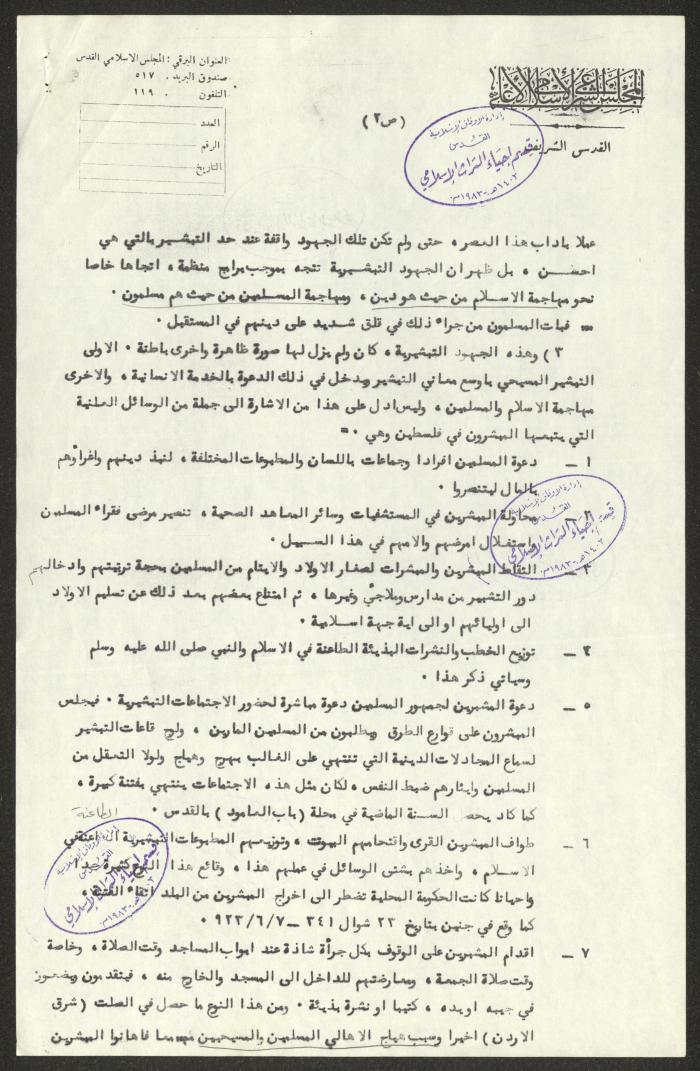 المجلس الشرعي الإسلامي الأعلى
القدس الشريف
العنوان البرقي : المجلس الاسلامي القدس
صندوق البريد . ٥١٧
التلفون . ١١٩
العدد
الرقم
التاريخ
( ص٢ )
إدارة الأوقاف الإسلامية
القدس
قسم إحياء التراث الإسلامي
١٤٠٢هـ - ١٩٨٣م
عملا باداب هذا العصر ، حتى ولم تكن تلك الجهود واقفة عند حد التبشير بالتي هي
احسن ، بل ظهر ان الجهود التبشيرية تتجه بموجب برامج منظمة ، اتجاها خاصا
نحو مهاجمة الاسلام من حيث هو دين ، ومهاجمة المسلمين من حيث هم مسلمون .
فبات المسلمون من جراء ذلك في قلق شديد على دينهم في المستقبل .
٣ ) وهذه الجهود التبشيرية ، كان ولم يزل لها صورة ظاهرة واخرى باطنة . الاولى
التبشير المسيحي باوسع معاني التبشير ويدخل في ذلك الدعوة بالخدمة الانسانية ، والاخرى
مهاجمة الاسلام والمسلمين ، وليس ادل على هذا من الاشارة الى جملة من الوسائل العلنية
التي يتبعها المبشرون في فلسطين وهي .=
١ — دعوة المسلمين افرادا وجماعات باللسان والمطبوعات المختلفة ، لنبذ دينهم واغراؤهم
بالمال ليتنصروا .
محاولة المبشرين في المستشفيات وسائر المعاهد الصحية ، تنصير مرضى فقراء المسلمين
واستغلال امرضهم والامهم في هذا السبيل .
إدارة الأوقاف الإسلامية
القدس
قسم إحياء التراث الإسلامي
١٤٠٢هـ - ١٩٨٣م
٣ — التقاط المبشرين والمبشرات لصغار الاولاد والايتام من المسلمين بحجة تربيتهم وادخالهم
دور التبشير من مدارس وملاجئ وغيرها ، ثم امتناع بعضهم بعد ذلك عن تسليم الاولاد
الى اوليائهم او الى اية جهة اسلامية .
٤ — توزيع الخطب والنشرات البذيئة الطاعنة في الاسلام والنبي صلى الله عليه وسلم
وسياتي ذكر هذا .
٥ — دعوة المبشرين لجمهور المسلمين دعوة مباشرة لحضور الاجتماعات التبشيرية . فيجلس
المبشرون على قوارع الطرق ويطلبون من المسلمين المارين ، ولوج قاعات التبشير
لسماع المجادلات الدينية التي تنتهي على الغالب بهرج وهياج ولولا التعقل من
المسلمين وايثارهم ضبط النفس ، لكان مثل هذه الاجتماعات ينتهي بفتنة كبيرة ،
كما كاد يحصل السنة الماضية في محلة ( باب العامود ) بالقدس .
الطاعنة
٦ — طواف المبشرين القرى واقتحامهم البيوت ، وتوزيعهم المطبوعات التبشيرية الطاعنة في
الاسلام ، واخذهم بشتى الوسائل في عملهم هذا ، وقائع هذا النوع كثيرة جدا
واحيانا كانت الحكومة المحلية تضطر الى اخراج المبشرين من البلد اتقاء الفتنة ،
كما وقع في جنين بتاريخ ٢٣ شوال ٣٤١ — ٩٢٣/٦/٧ .
إدارة الأوقاف الإسلامية
القدس
قسم إحياء التراث الإسلامي
١٤٠٢هـ - ١٩٨٣م
٧ — اقدام المبشرين على الوقوف بكل جرأة شاذة عند ابواب المساجد وقت الصلاة ، وخاصة
وقت صلاة الجمعة ، ومعارضتهم للداخل الى المسجد والخارج منه ، فيتقدمون ويضعون
في جيبه او يده ، كتيبا او نشرة بذيئة . ومن هذا النوع ما حصل في الصلت ( شرق
الاردن ) اخيرا وسبب هياج الاهالي المسلمين والمسيحيين فاهانوا المبشرين